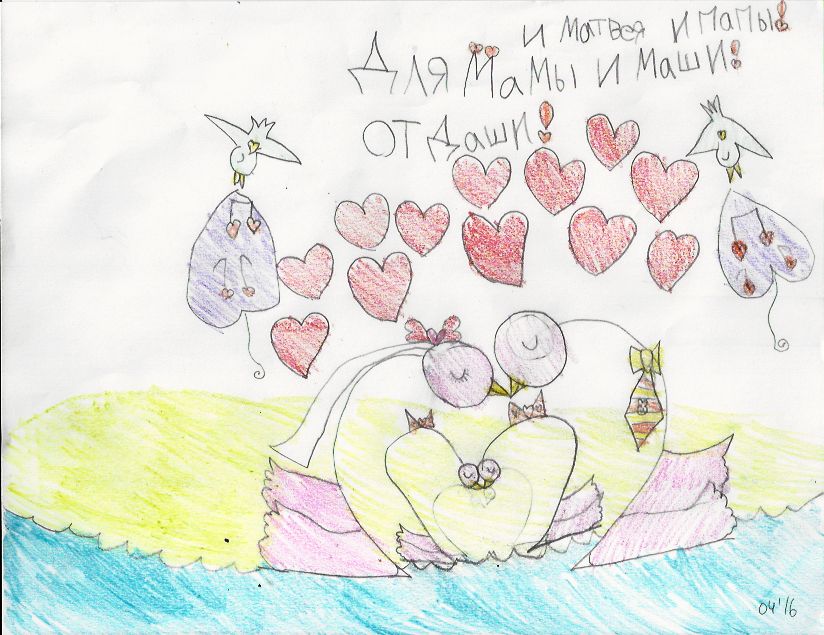 и матвея и мамы!
Для мамы и маши!
от Даши!
04'16